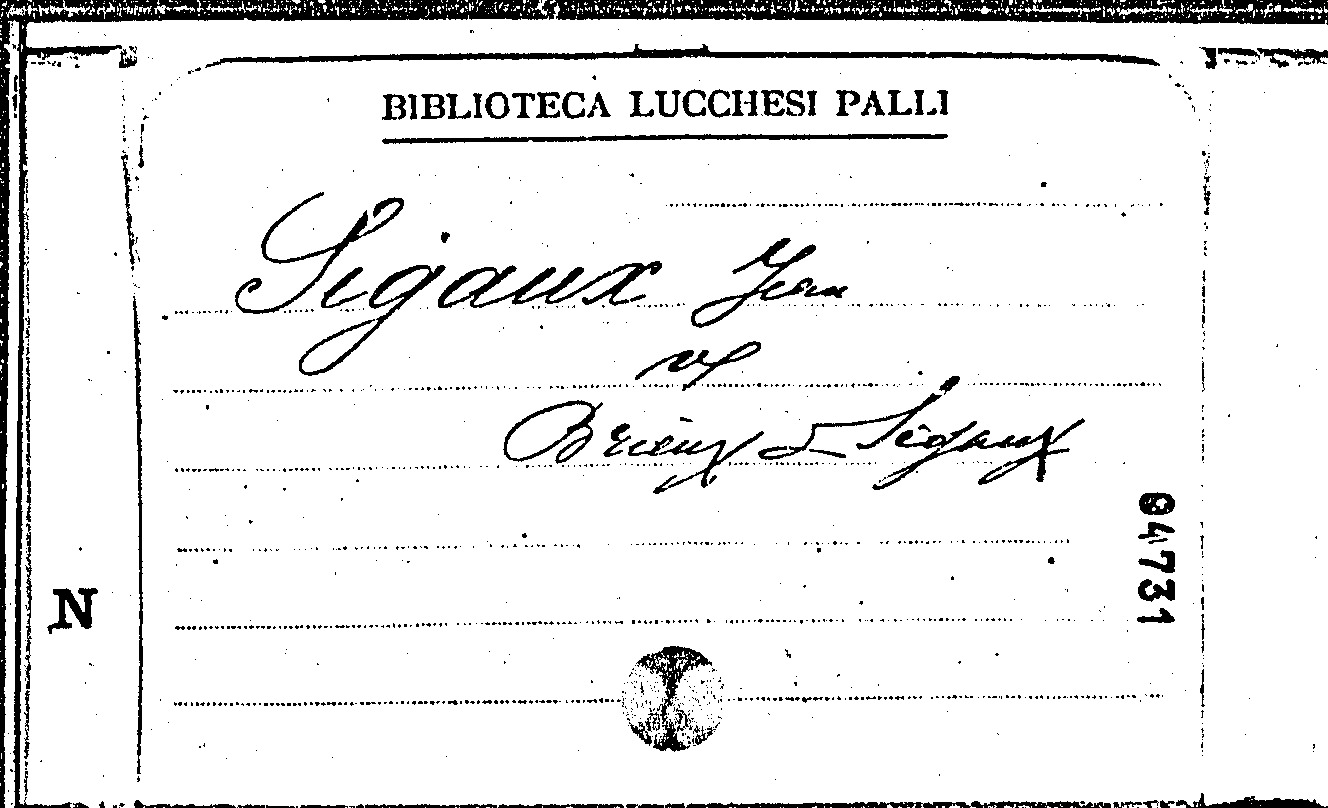 BIBLIOTECA LUCCHESI PALLI
Sigaux Jean
Brieux & Sigaux
04731
N